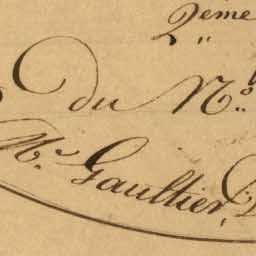 2ème
Du N°.
Mr. Gaultier,